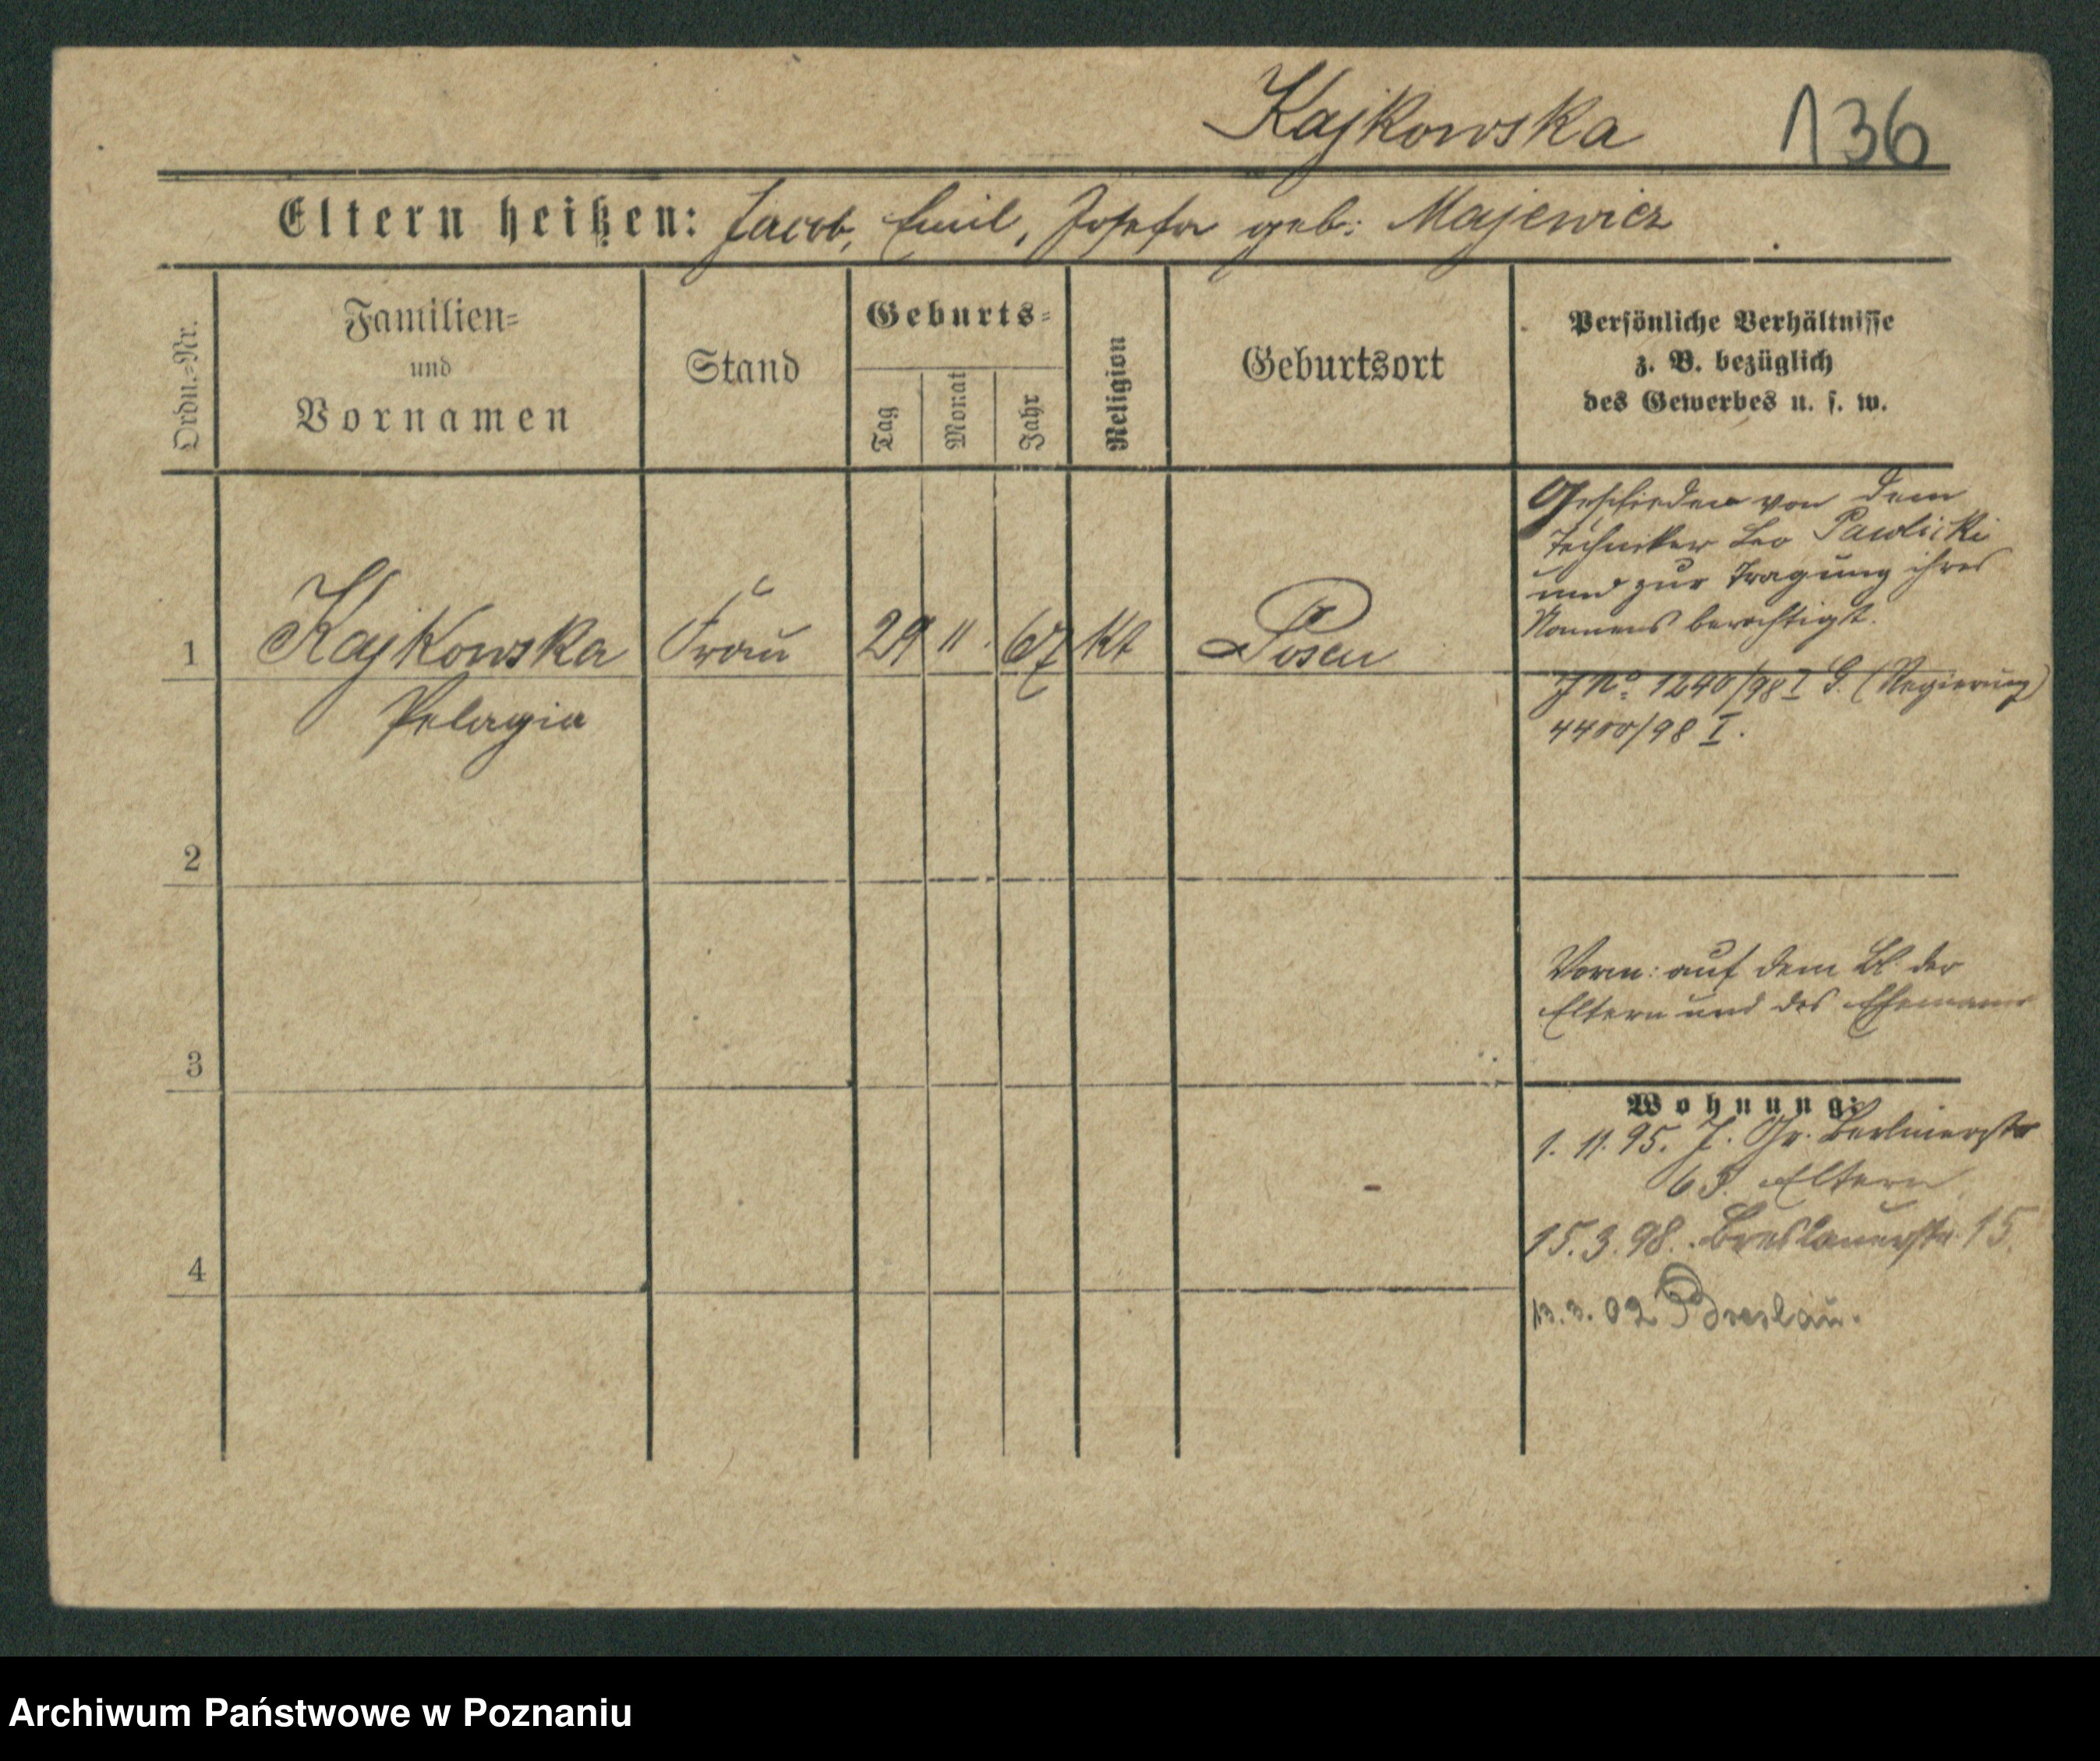 Kajkowska 136
Eltern heißen: Jacob, Emil, Josefa geb: Majewicz
Ordn.=Nr.
Familien=
und
Vornamen
Stand
Geburts=
Tag
Monat
Jahr
Religion
Geburtsort
Persönliche Verhältnisse
z. B. bezüglich
des Gewerbes u. s. w.
Geschieden von dem
Techniker Leo Pawlicki
und zur Tragung ihres
Namens berechtigt.
1 Kajkowska Frau 29 11. 67 Kt Posen
Pelagia
J No. 1240/98 I G. (Regierung)
4400/98 I.
2
Verm: auf dem Bl. der
Eltern und des Ehemann
3
Wohnung:
1. 11. 95. J. Gr. Berlinerstr
63. Eltern
15. 3. 98. Breslauerstr 15.
4
13. 3. 02 Breslau.
Archiwum Państwowe w Poznaniu